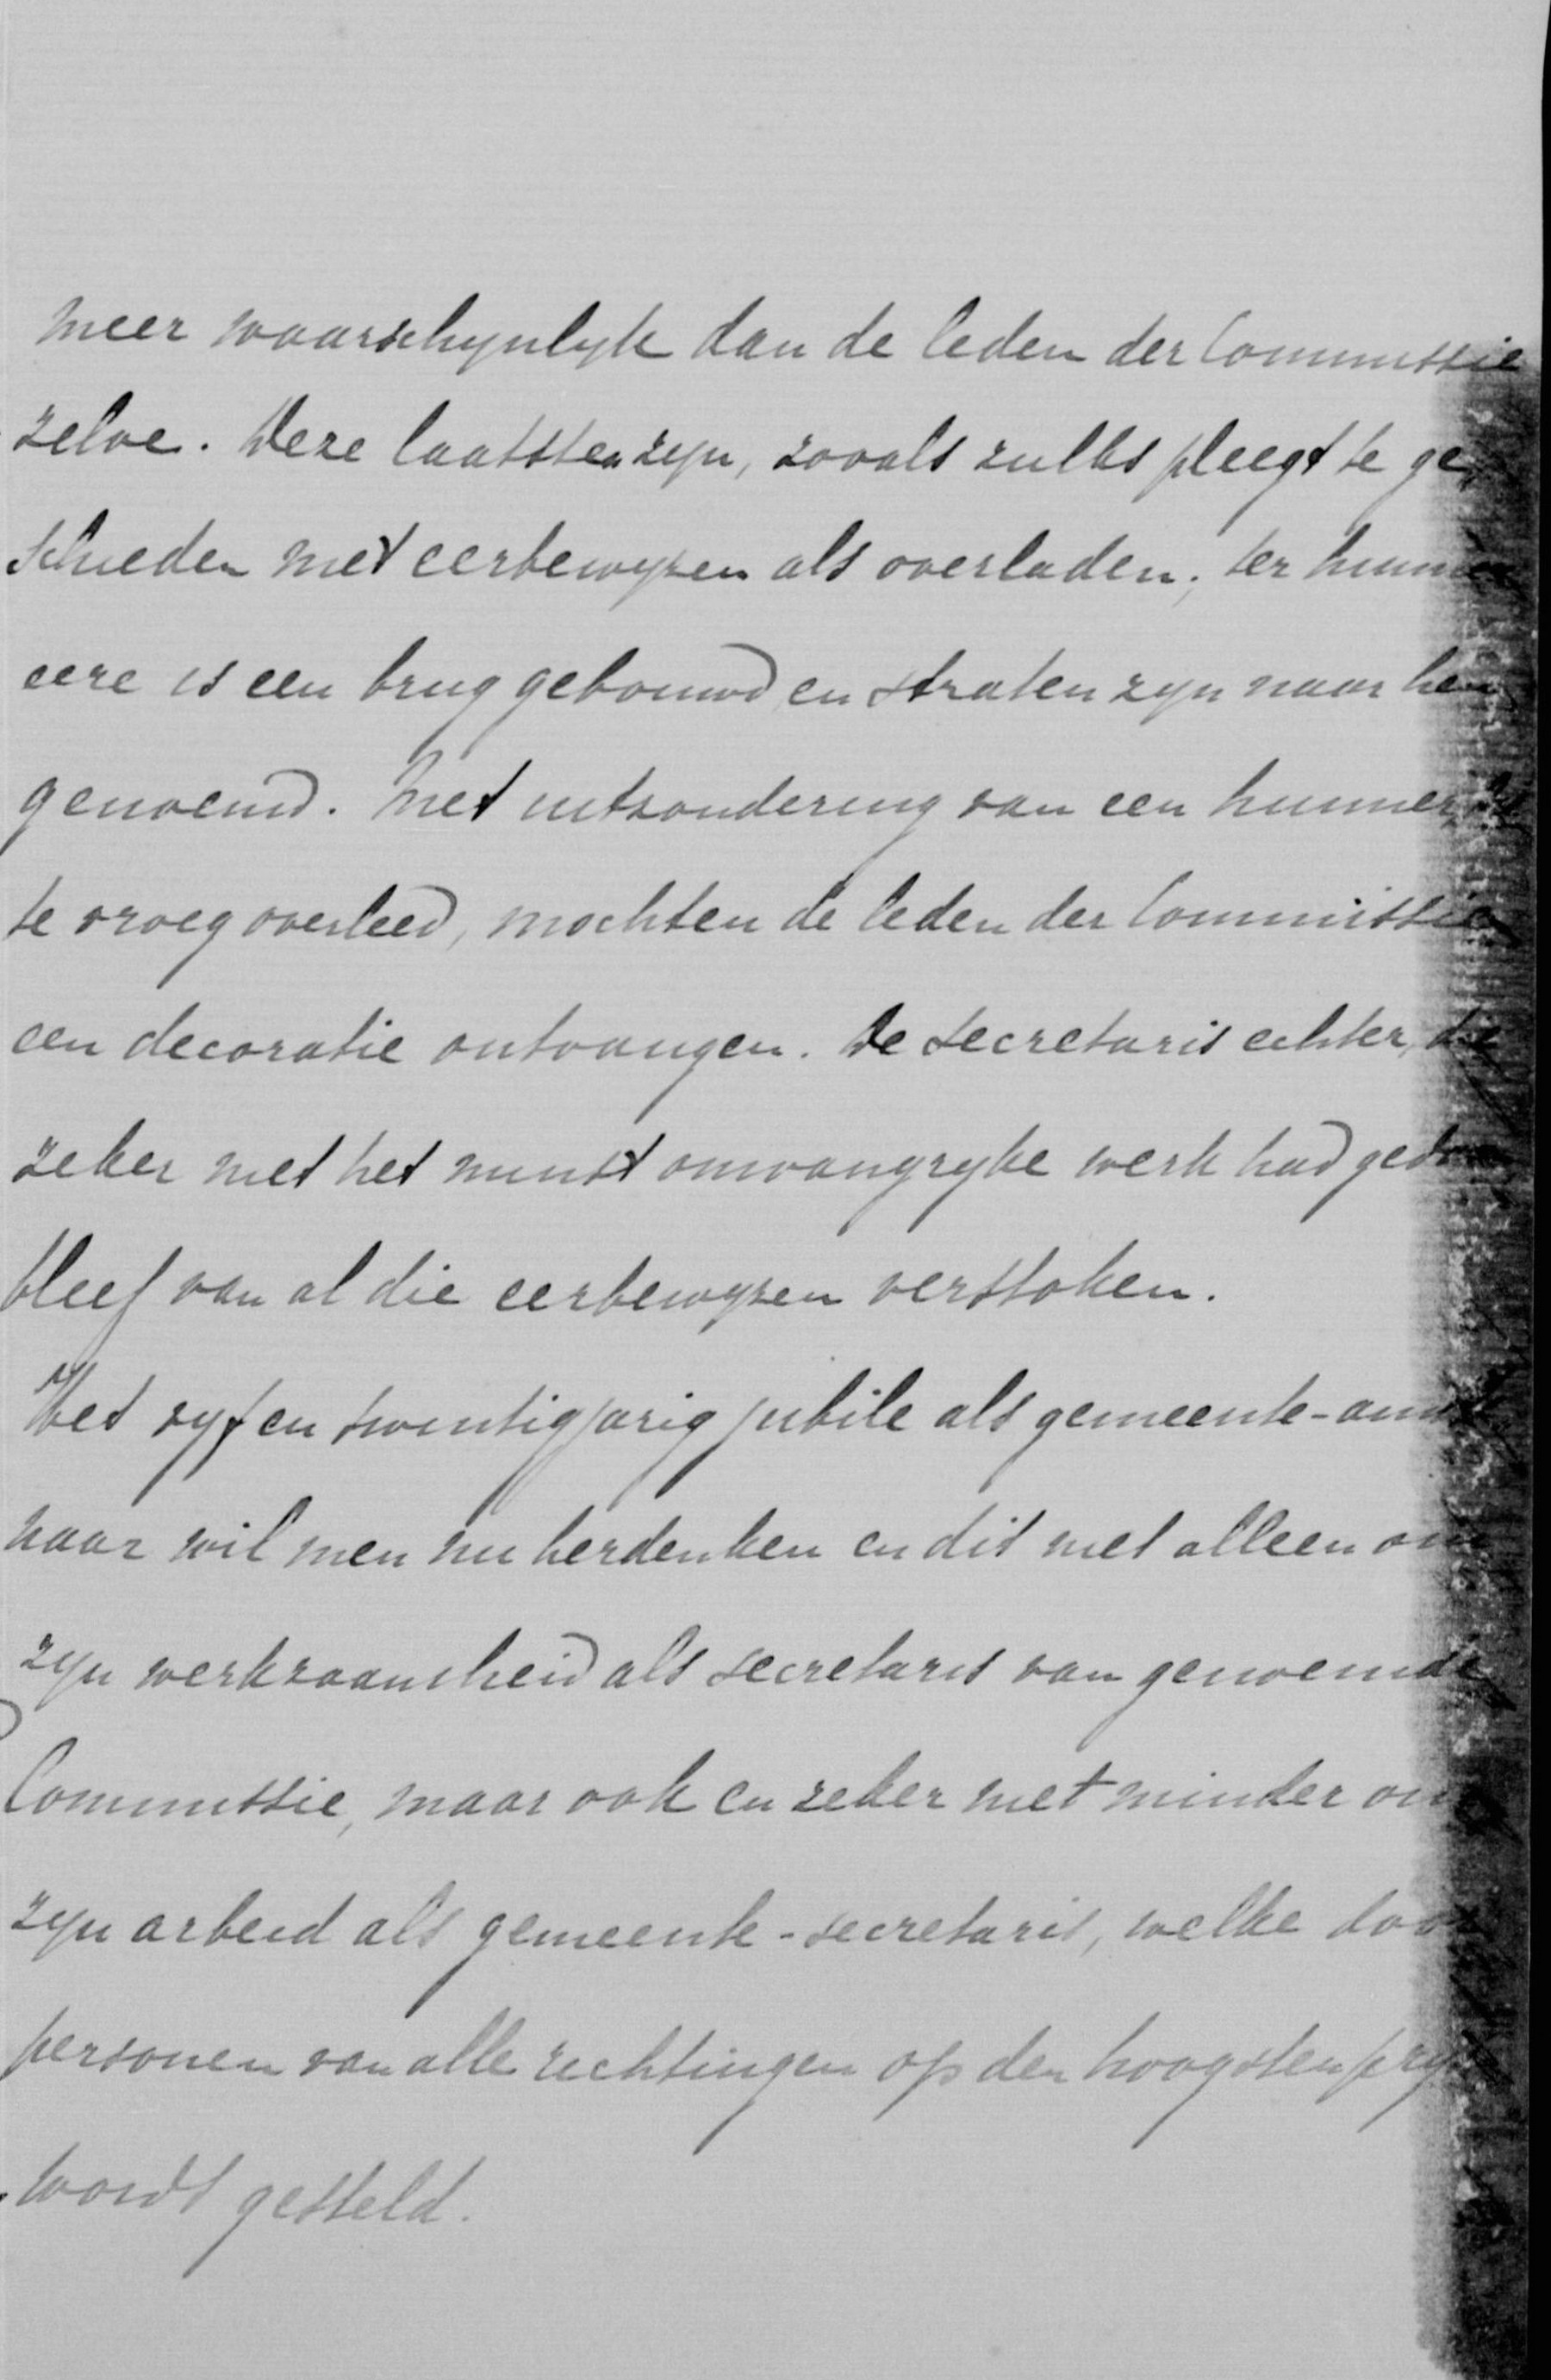 meer waarschynlyk dan de leden der Commissie
zelve. Deze laatsten zyn, zooals zulks pleegt te ge-
schieden met eerbewyzen als overladen; ter hunner
eere is een brug gebouwd en straten zyn naar hen
genoemd. Met uitzondering van een hunner,
te vroeg overleed, mochten de leden der Commissie
een decoratie ontvangen. De secretaris echter, die
zeker niet het minst omvangryke werk had
bleef van al die eerbewyzen verstoken.
Het vyf en twintigjarig jubilé als gemeente-
naar wil men nu herdenken en dit niet alleen om
zyn werkzaamheid als secretaris van genoemde
Commissie, maar ook en zeker niet minder om
zyn arbeid als gemeente-secretaris, welke door
personen van alle richtingen op den hoogsten
wordt gesteld.